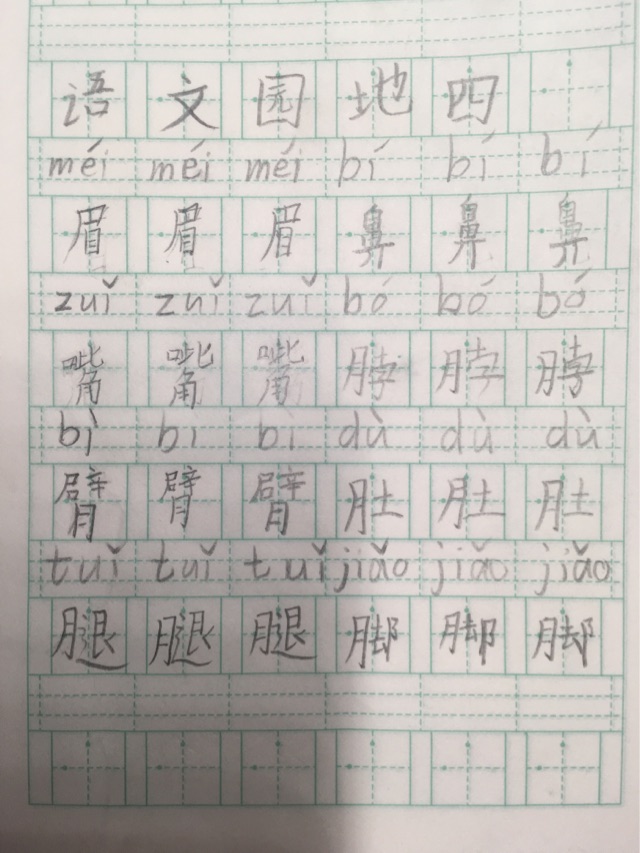 语文园地四
méi méi méi bí bí bí
眉眉眉鼻鼻鼻
zuǐ zuǐ zuǐ bó bó bó
嘴嘴嘴脖脖脖
bì bì bì dù dù dù
臂臂臂肚肚肚
tuǐ tuǐ tuǐ jiǎo jiǎo jiǎo
腿腿腿脚脚脚